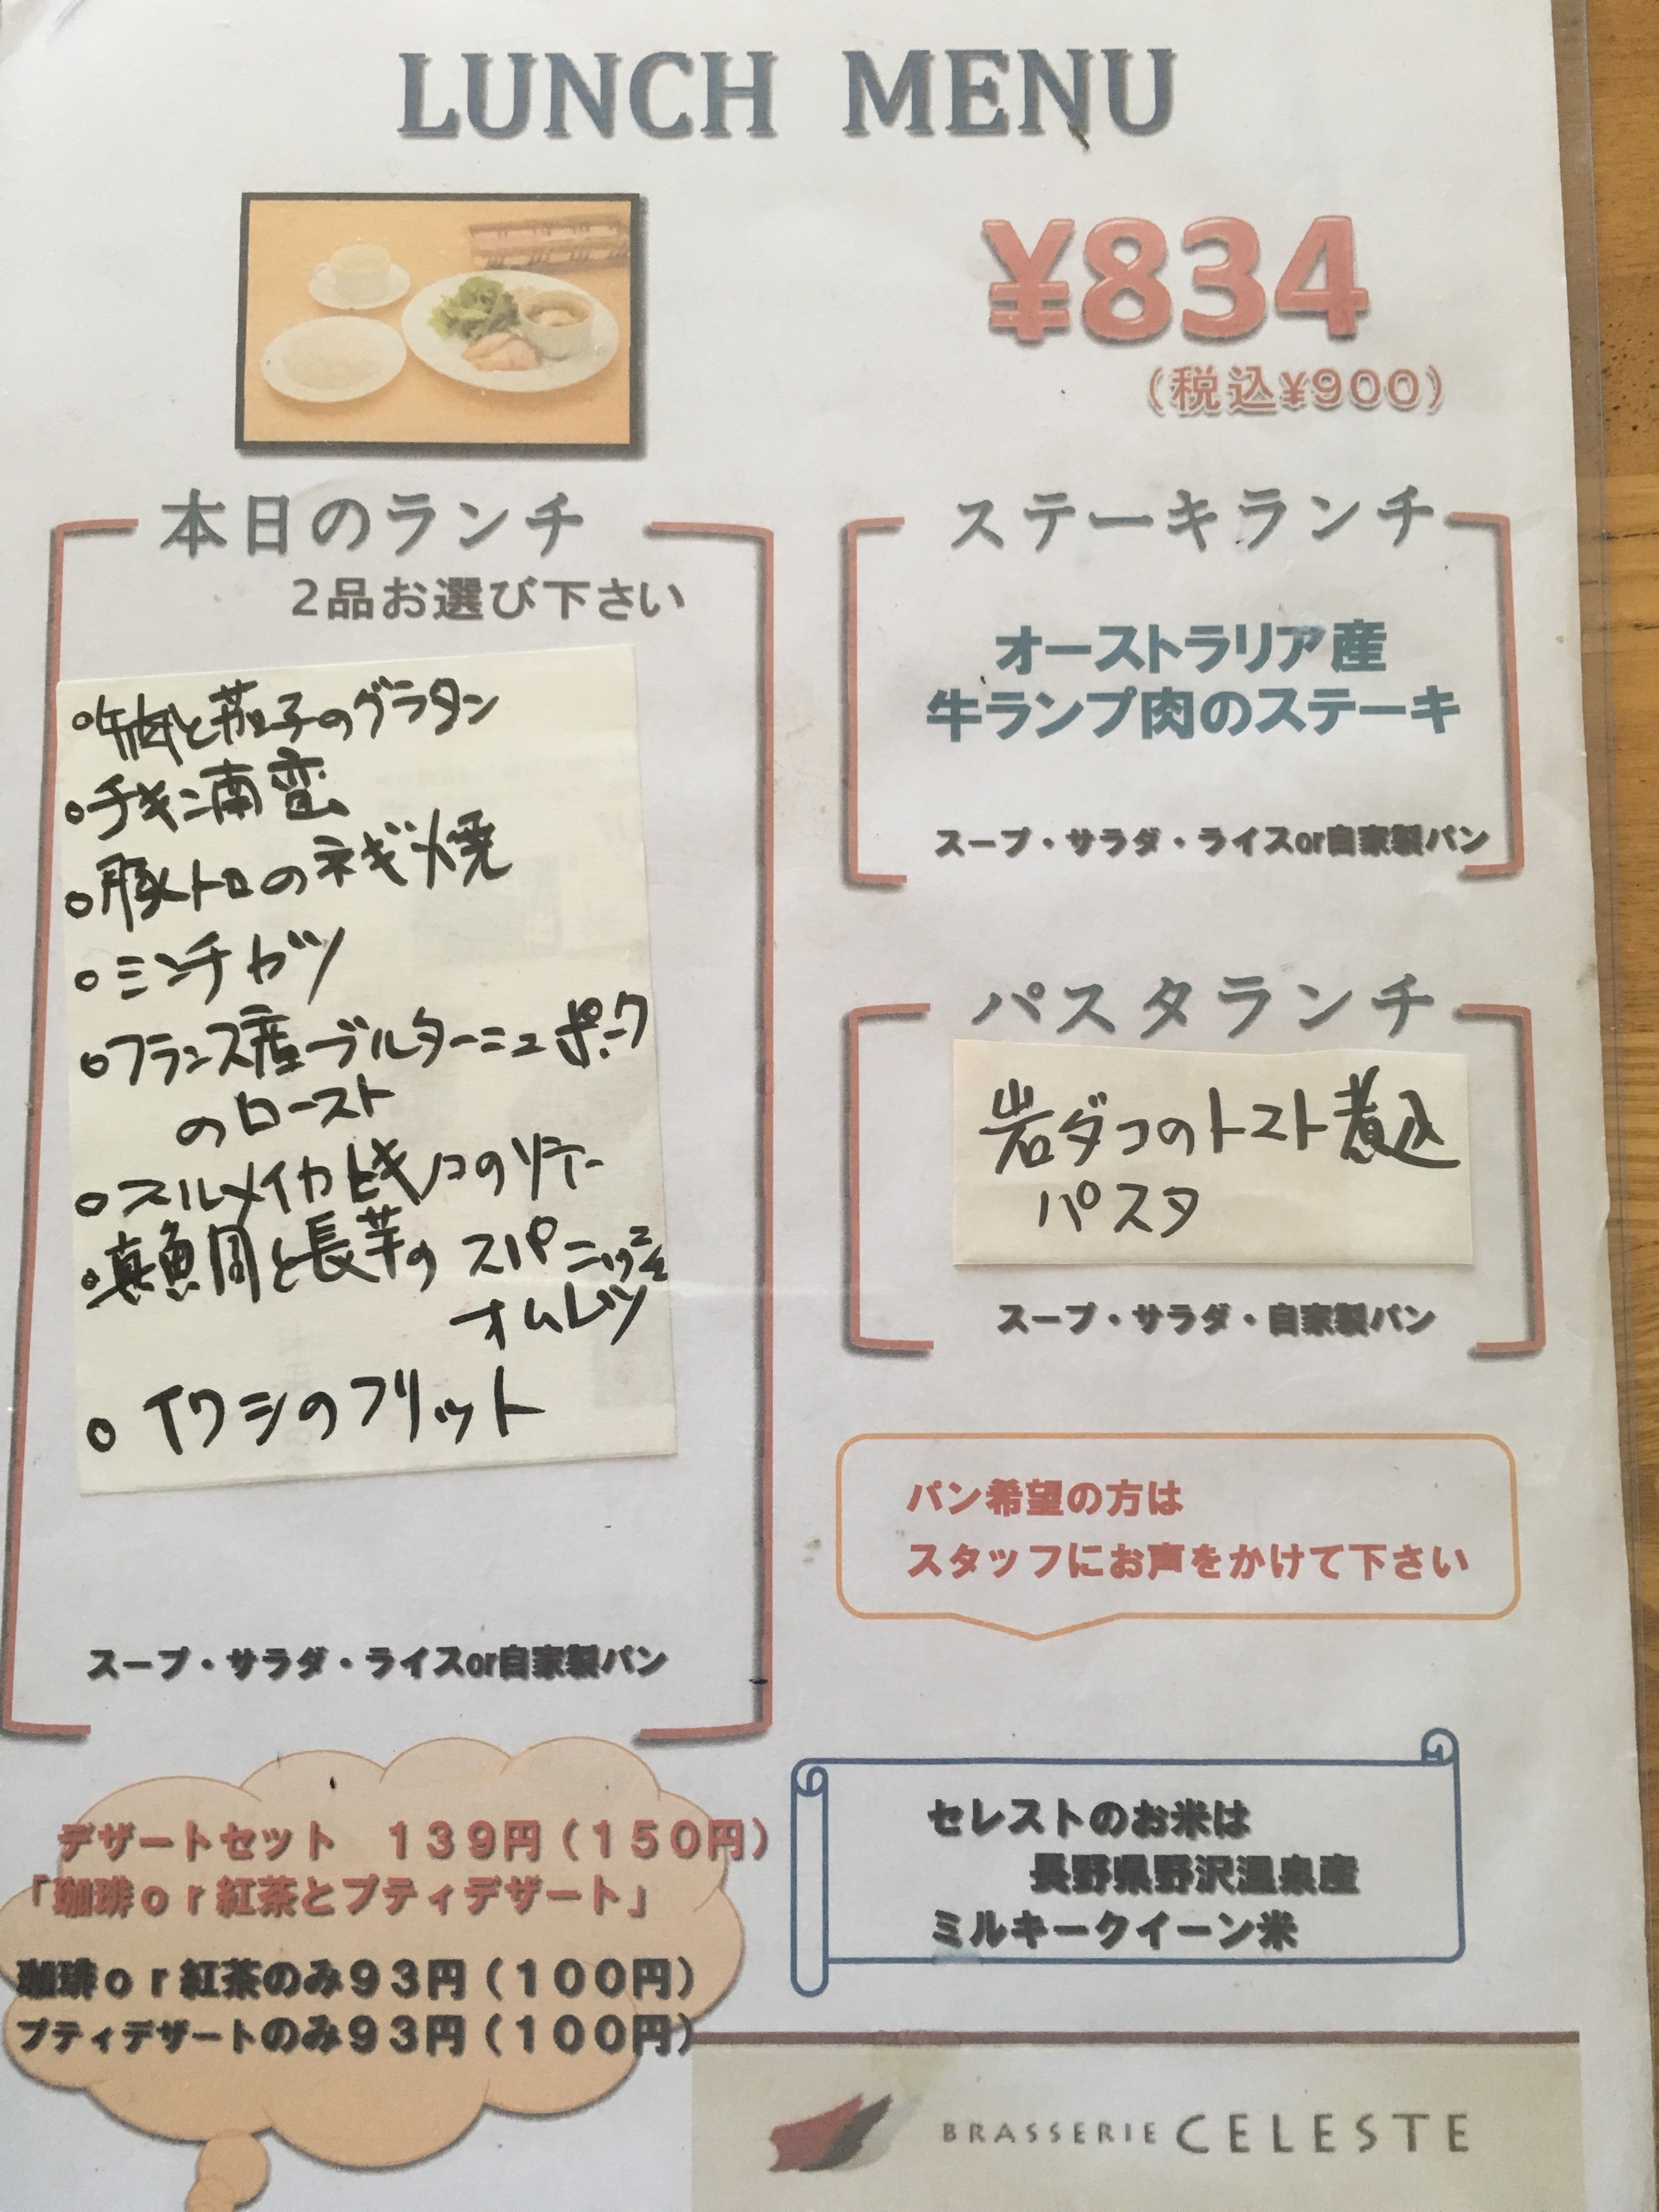 LUNCH MENU
¥834
(税込¥900)
本日のランチ
2品お選び下さい
と茄子のグラタン
チキン南蛮
豚トロのネギ焼
ミンチカツ
フランス産ブルターニュポーク
のロースト
スルメイカとキノコのソテー
真魚周と長芋のスパニッシュ
オムレツ
イワシのフリット
スープ・サラダ・ライスor自家製パン
ステーキランチ
オーストラリア産
牛ランプ肉のステーキ
スープ・サラダ・ライスor自家製パン
パスタランチ
岩ダコのトマト煮込
パスタ
スープ・サラダ・自家製パン
パン希望の方は
スタッフにお声をかけて下さい
デザートセット 139円(150円)
「珈琲or紅茶とプティデザート」
珈琲or紅茶のみ93円(100円)
プティデザートのみ93円(100円)
セレストのお米は
長野県野沢温泉産
ミルキークイーン米
BRASSERIE CELESTE